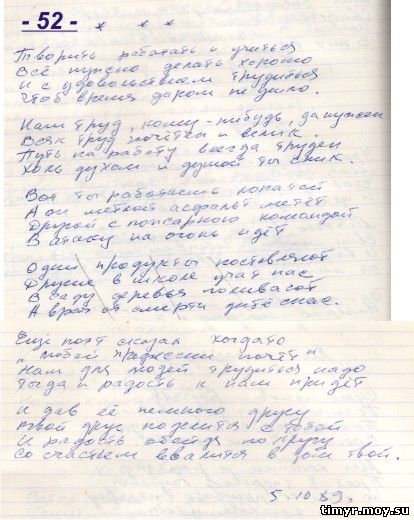 - 52 -
* * *
Творить работать и учиться
Всё нужно делать хорошо
И с удовольствием трудиться
Чтоб время даром не ушло.
Наш труд, кому-нибудь, да нужен
Всяк труд почётен и велик.
Путь на работу всегда труден
Хоть духом и душой ты сник.
Вот ты работаешь лопатой
А он метлой асфальт метёт
Другой с пожарною командой
В атаку на огонь идёт
Одни продукты поставляют
Другие в школе учат нас
В саду деревья поливают
А врач от смерти дитё спас.
Ещё поэт сказал когда-то
"Любой профессии почёт"
Нам для людей трудиться надо
Тогда и радость к нам придёт
И дав её немного другу
Твой друг поделится с тобой
И радость обойдя по кругу
Со счастьем ввалится в дом твой.
5.10 89.
timyr.moy.su